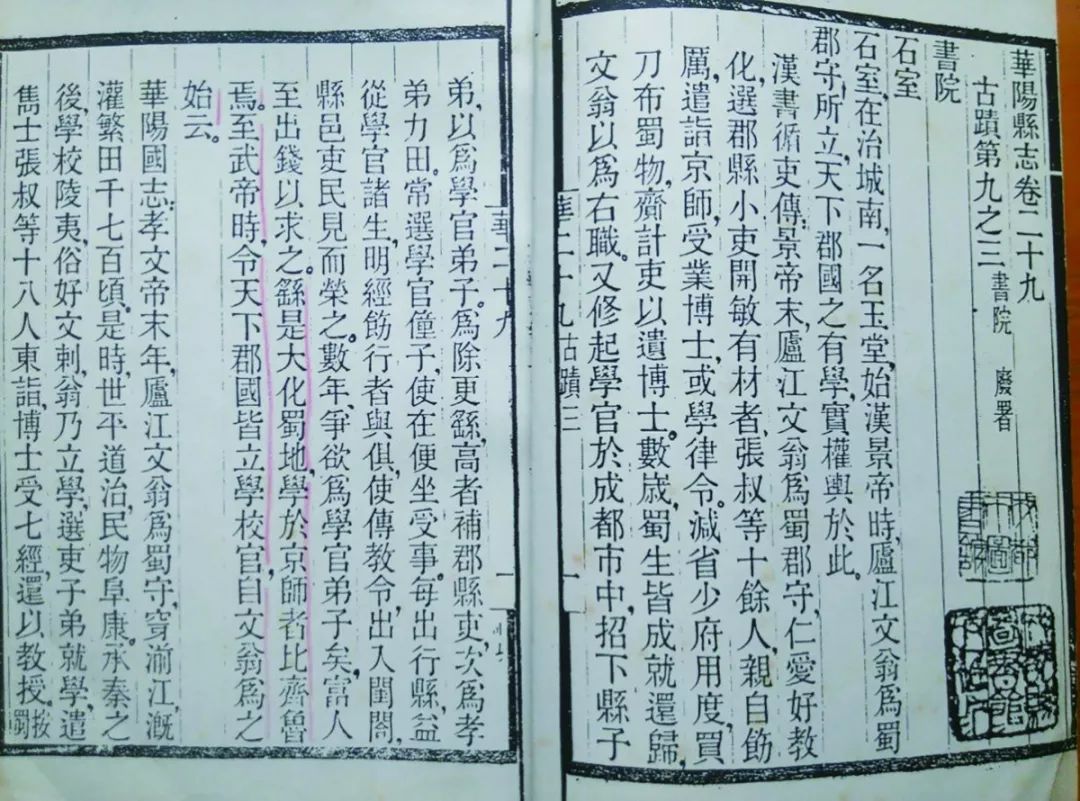 華陽縣志卷二十九
古蹟第九之三 書院 廢署
書院
石室
石室,在治城南,一名玉堂,始漢景帝時,廬江文翁爲蜀
郡守所立,天下郡國之有學,實權輿於此。
漢書循吏傳:景帝末,廬江文翁爲蜀郡守,仁愛好教
化,選郡縣小吏開敏有材者,張叔等十餘人,親自飭
厲,遣詣京師,受業博士,或學律令。減省少府用度,買
刀布蜀物,齎計吏以遺博士。數歲,蜀生皆成就還歸,
文翁以爲右職。又修起學官於成都市中,招下縣子
華二十九 古蹟三
弟,以爲學官弟子。爲除更繇,高者補郡縣吏,次爲孝
弟力田。常選學官僮子,使在便坐受事。每出行縣,益
從學官諸生,明經飭行者與俱,使傳教令,出入閨閤,
縣邑吏民見而榮之。數年,爭欲爲學官弟子矣,富人
至出錢以求之。繇是大化蜀地,學於京師者比齊魯
焉。至武帝時,令天下郡國皆立學校官,自文翁爲之
始云。
華陽國志:孝文帝末年,廬江文翁爲蜀守,穿湔江,溉
灌繁田千七百頃。是時,世平道治,民物阜康。承秦之
後,學校陵夷,俗好文刺,翁乃立學,選吏子弟就學,遣
雋士張叔等十八人東詣,博士受七經,還以教授。按蜀